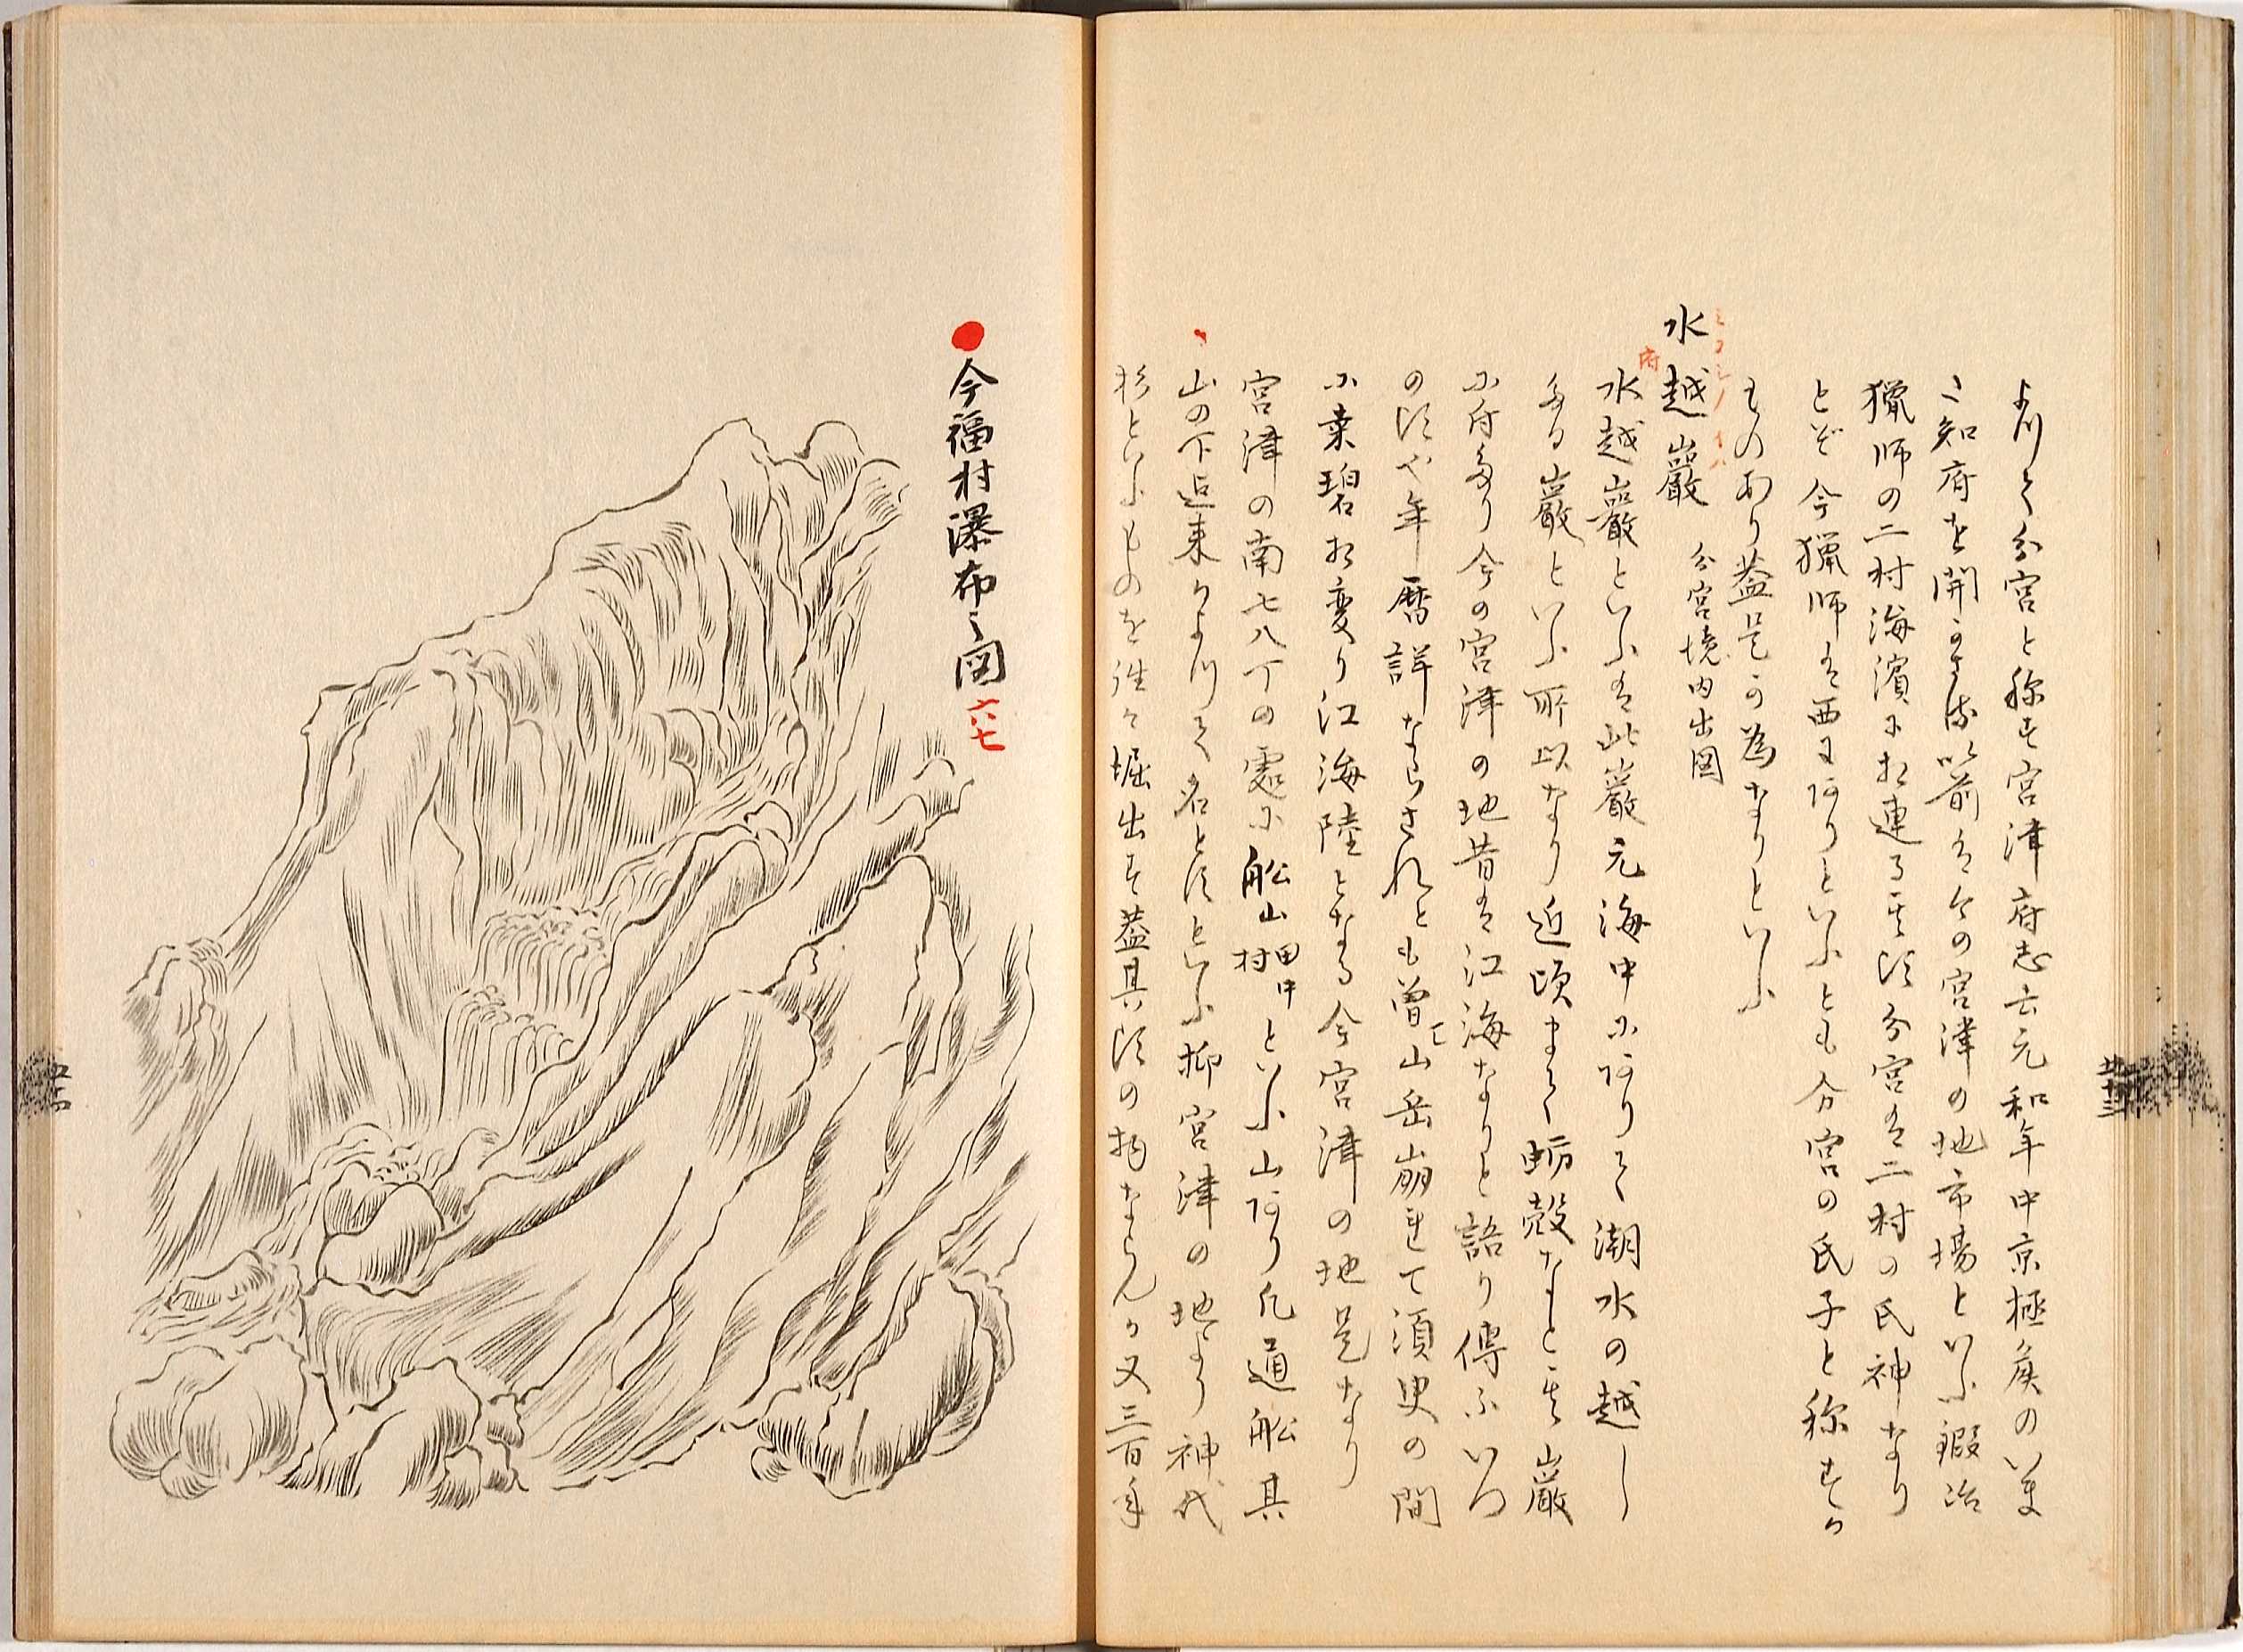 よりて分宮と称す宮津府志云元和年中京極侯のいま
た知府を開かさる以前は今の宮津の地市場といふ鍜冶
猟師の二村海濱に相連る其頃分宮は二村の氏神なり
とぞ今猟師は西にありといふとも分宮の氏子と称するか
ものあり蓋是か為なりといふ
水越巖 分宮境内出図
ミツコシノイハ
府
水越巖といふは此巖元海中にありて潮水の越し
たる巖といふ所以なり近頃まて蛎殻なと其巖
に付たり今の宮津の地昔は江海なりと語り傳ふいつ
の頃や年暦詳ならされとも曽て山岳崩れて須臾の間
に桒碧相変り江海陸となる今宮津の地是なり
宮津の南七八丁の處に舩山田中村といふ山あり凡通舩其
山の下迄来りよりて名と頃といふ抑宮津の地より神代
杉といふものを往々堀出す蓋其頃の物ならんか又三百年
今福村瀑布之図 六七
五十三
五十四